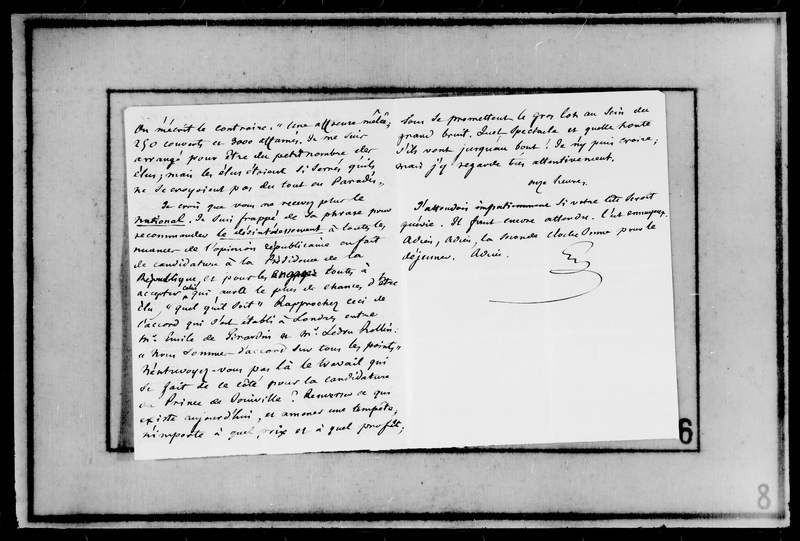 On m'écrit le contraire. "Une affreuse mêlée;
250 couverts et 3000 affamés. Je me suis
arrangé pour être du petit nombre des
élus; mais les élus étaient si serrés qu'ils
ne se croyoient pas du tout en Paradis."
Je crois que vous ne recevez plus le
National. Je suis frappé de sa phrase pour
recommander le désintéressement à toutes les
nuances de l'opinion républicaine en fait
de candidature à la Présidence de la
République, et pour les engager toutes à
accepter celui qui aura le plus de chances d'être
élu, "quel qu'il soit". Rapprochez ceci de
l'accord qui s'est établi à Londres entre
Mr. Emile de Girardin et Mr. Ledru Rollin:
"Nous sommes d'accord sur tous les points."
N'entrevoyez-vous pas là le travail qui
se fait de ce côté pour la candidature
du Prince de Joinville? Renverser ce qui
existe aujourd'hui, et amener une tempête,
n'importe à quel prix et à quel profit;
tous se promettent le gros lot au sein du
grand bruit. Quel spectacle et quelle honte
s'ils vont jusqu'au bout! Je n'y puis croire;
mais j'y regarde très attentivement.
onze heures.
J'attendois impatiemment si votre tête seroit
guérie. Il faut encore attendre. C'est ennuyeux.
Adieu, adieu, la seconde cloche sonne pour le
déjeuner. Adieu.
6
8